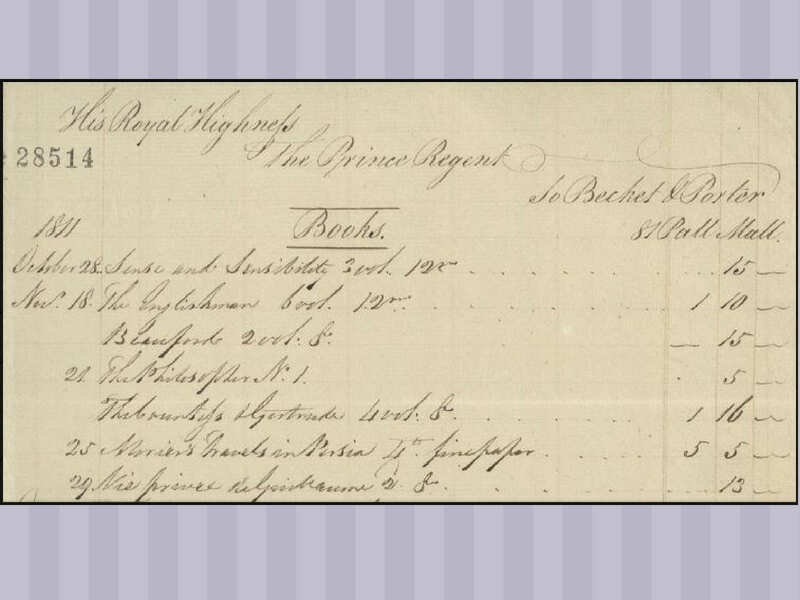 His Royal Highness
28514
The Prince Regent
To Becket & Porter
1811 Books. 81 Pall Mall.
October 28. Sense and Sensibility 3 vol. 12mo 15 —
Nov. 18. The Englishman 6 vol. 12mo 1 10 —
Beauford 2 vol. 8o. — 15 —
21. The Philosopher No. 1. 5 —
The Countess & Gertrude 4 vol. 8o. 1 16 —
25 Morier's Travels in Persia 4to fine paper 5 5 —
29 Vie privée de 2 8o. 13 —